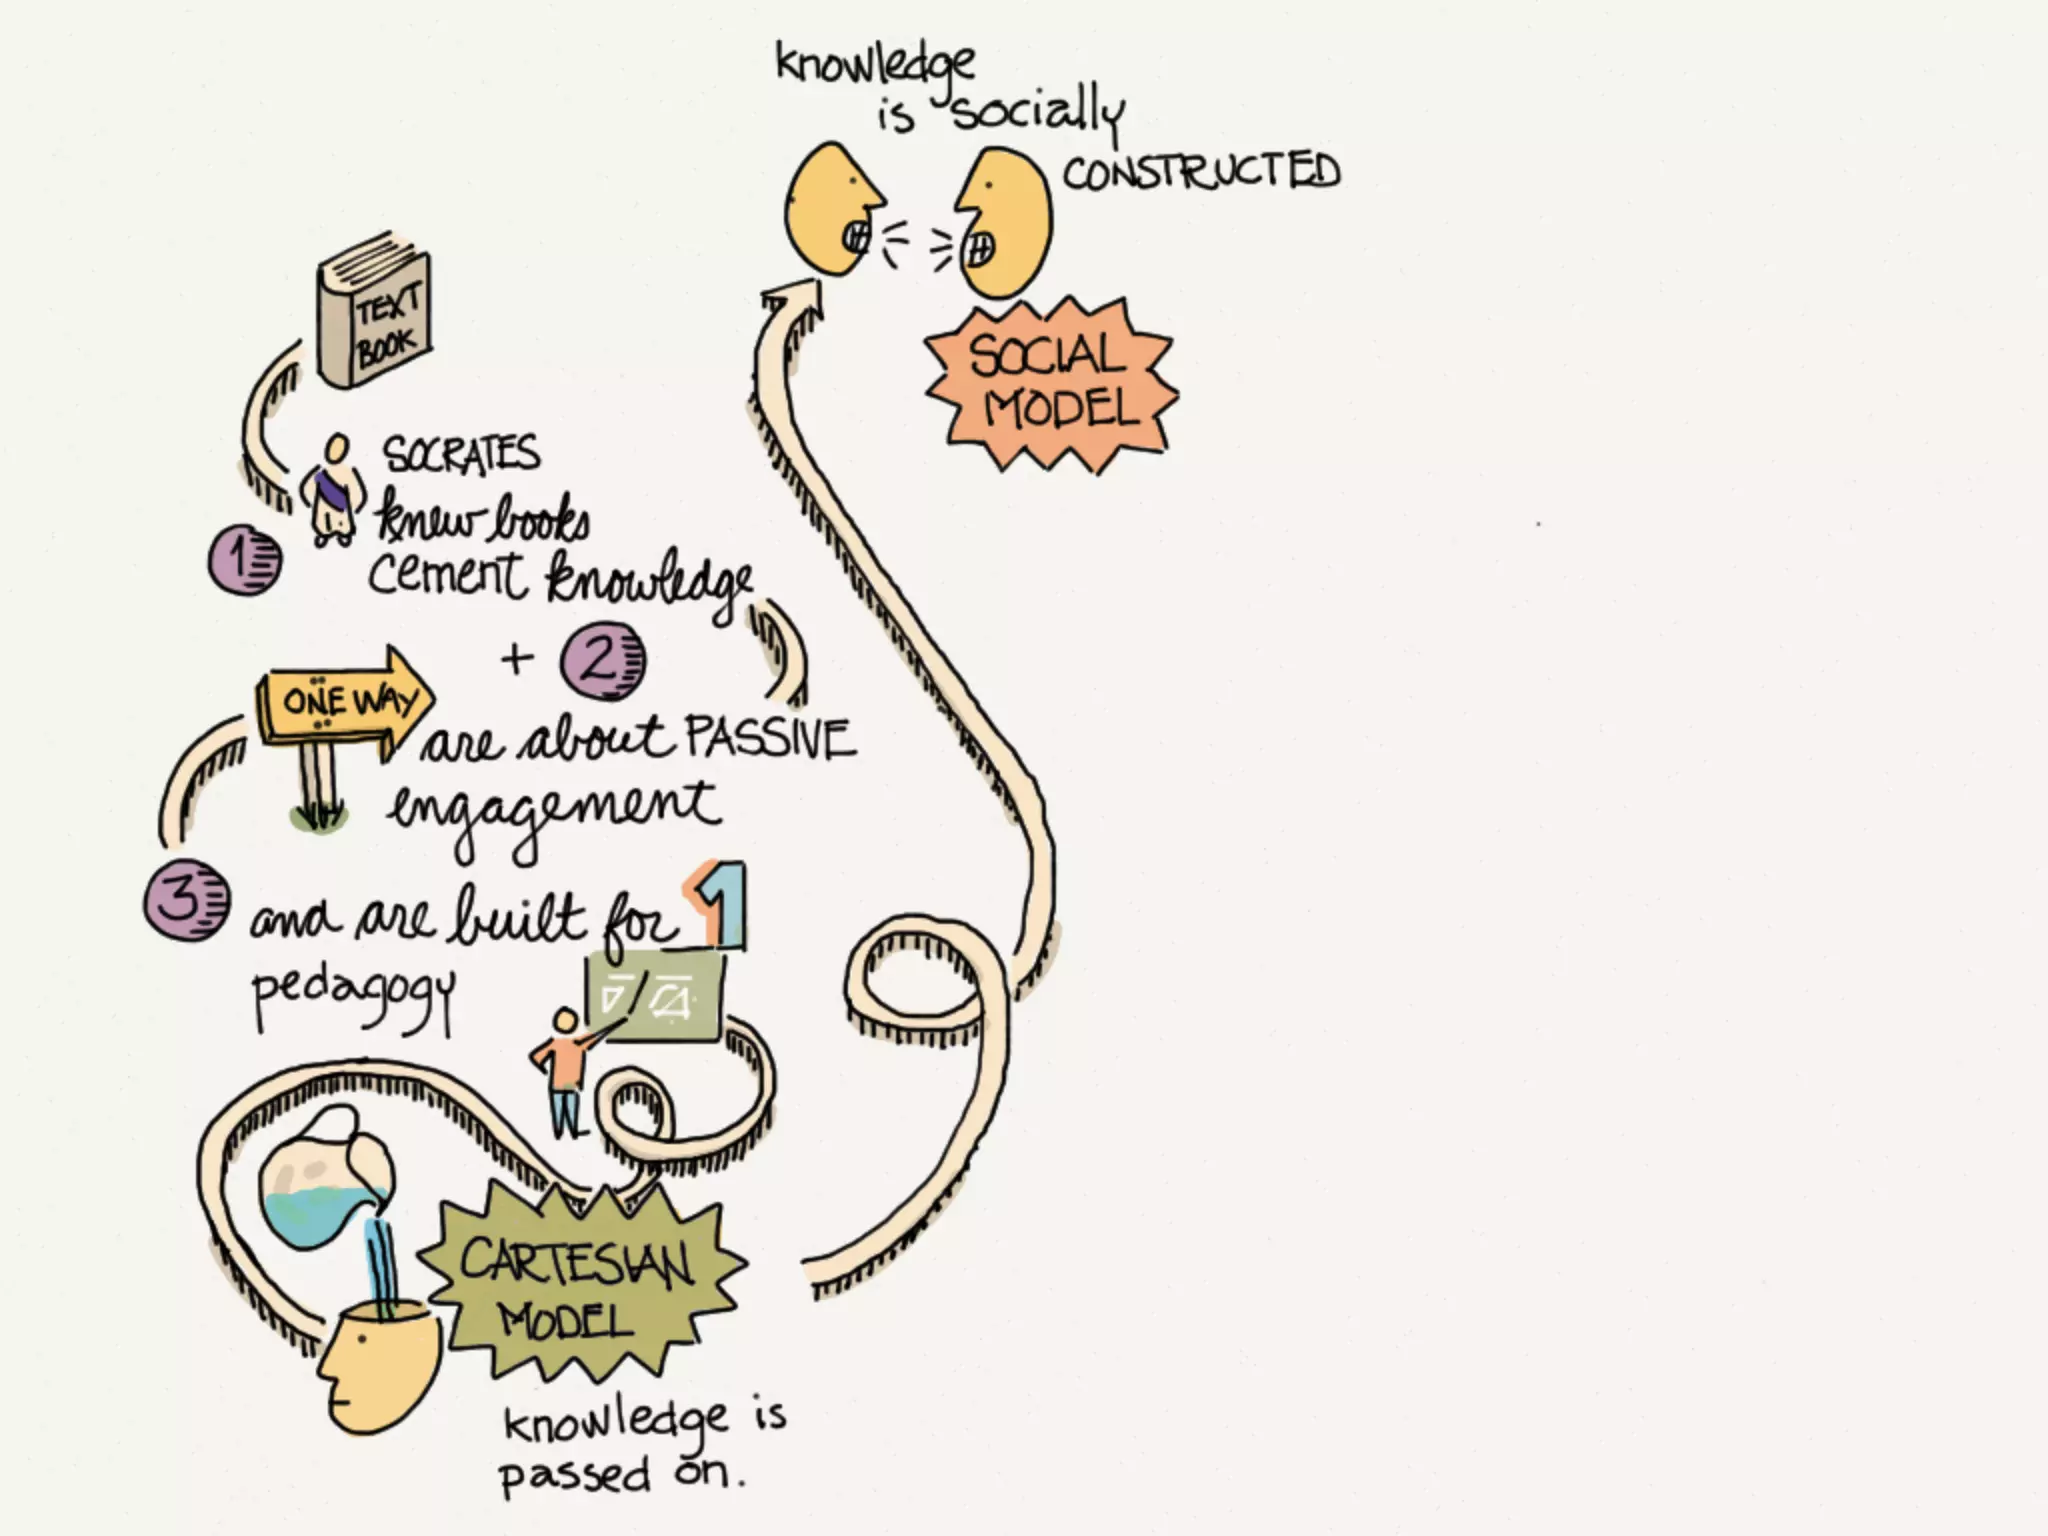 TEXT
BOOK
SOCRATES
knew books
cement knowledge
1
+ 2
ONE WAY
are about PASSIVE
engagement
3 and are built for 1
pedagogy
CARTESIAN
MODEL
knowledge is
passed on.
knowledge
is socially
CONSTRUCTED
SOCIAL
MODEL